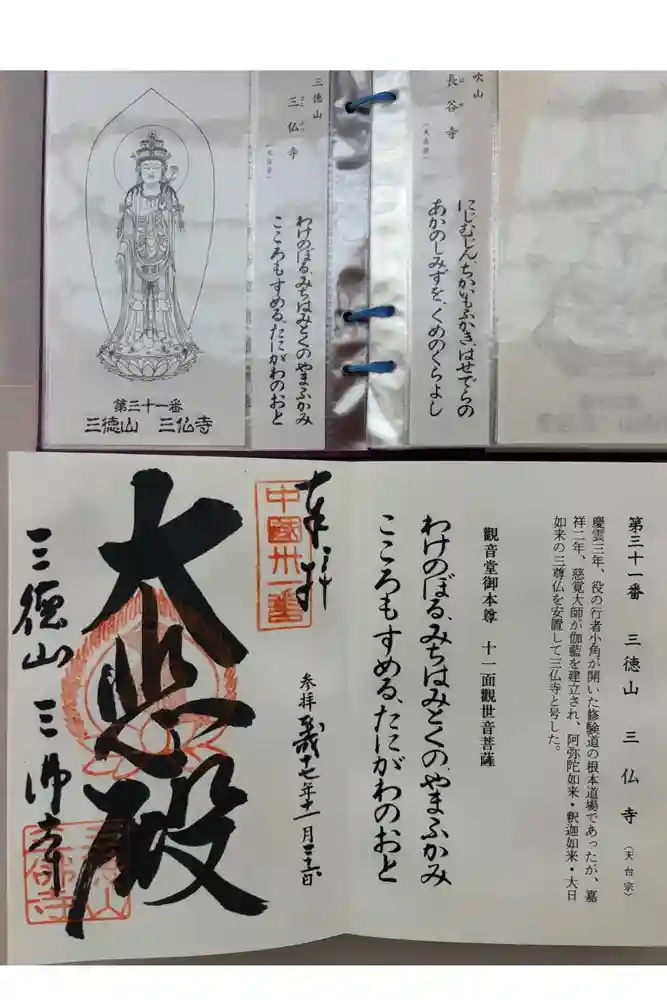 吹山
長谷寺
はせ
(天台宗)
にじむじん、ちかいもふかき、はせでらの
あかのしみずを、くめのくらよし
三徳山
三仏寺
さん ぶつ
(天台宗)
わけのぼる、みちはみとくの、やまふかみ
こころもすめる、たにがわのおと
第三十一番
三徳山 三仏寺
第三十一番 三徳山 三仏寺 (天台宗)
慶雲三年、役の行者小角が開いた修験道の根本道場であったが、嘉
祥二年、慈覚大師が伽藍を建立され、阿弥陀如来・釈迦如来・大日
如来の三尊仏を安置して三仏寺と号した。
觀音堂御本尊 十一面觀世音菩薩
わけのぼる、みちはみとくの、やまふかみ
こころもすめる、たにがわのおと
奉拝
中國卅一番
参拝 十七年十一月三日
大悲殿
三徳山 三佛寺